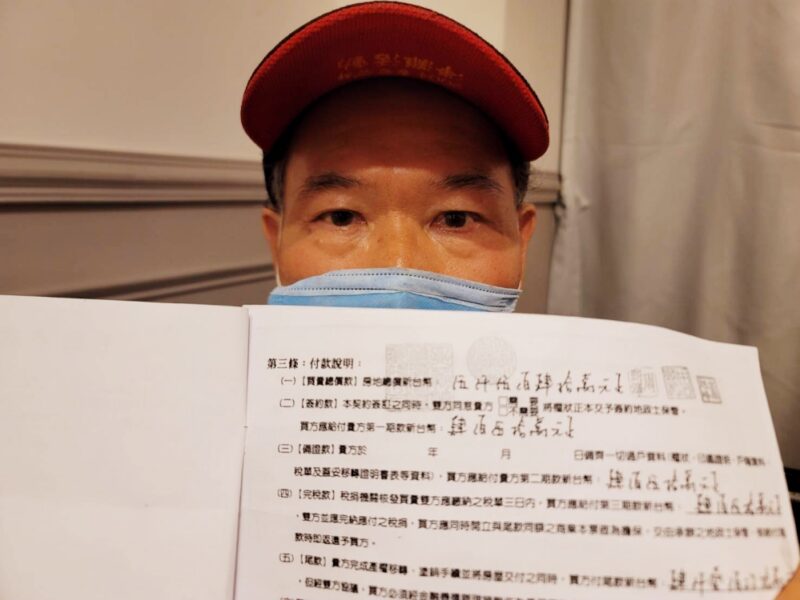 第三條：付款說明：
(一)【買賣總價款】房地總價新台幣：伍仟伍佰肆拾萬元正
(二)【簽約款】本契約簽訂之同時，雙方同意賣方 □需要 □不需要 將權狀正本交予簽約地政士保管。
買方應給付賣方第一期款新台幣：肆佰 拾萬元正
(三)【備證款】賣方於 年 月 日備齊一切過戶資料(權狀、印鑑證明、戶籍資料
稅單及蓋妥移轉證明書表等資料)，買方應給付賣方第二期款新台幣：肆佰 拾萬元正
(四)【完稅款】稅捐機關核發買賣雙方應繳納之稅單三日內，買方應給付第三期款新台幣：肆佰 拾萬元正
，雙方並應完納應付之稅捐，買方應同時開立與尾款同額之商業本票做為擔保，交由承辦之地政士保管，
款時即返還予買方。
(五)【尾款】賣方完成產權移轉、塗銷手續並將房屋交付之同時，買方付尾款新台幣：肆仟
，但經雙方協議，買方必須經金融機構